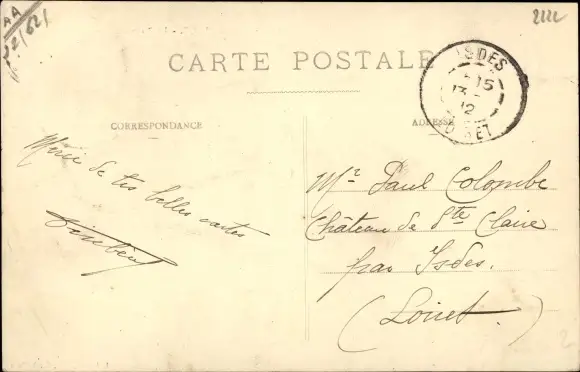 AA
2222
CARTE POSTALE
ISDES
15
13
12
LOIRET
CORRESPONDANCE
ADRESSE
Merci de tes belles cartes
Mr Paul Colombe
Château de Ste Claire
par Isdes.
(Loiret.)